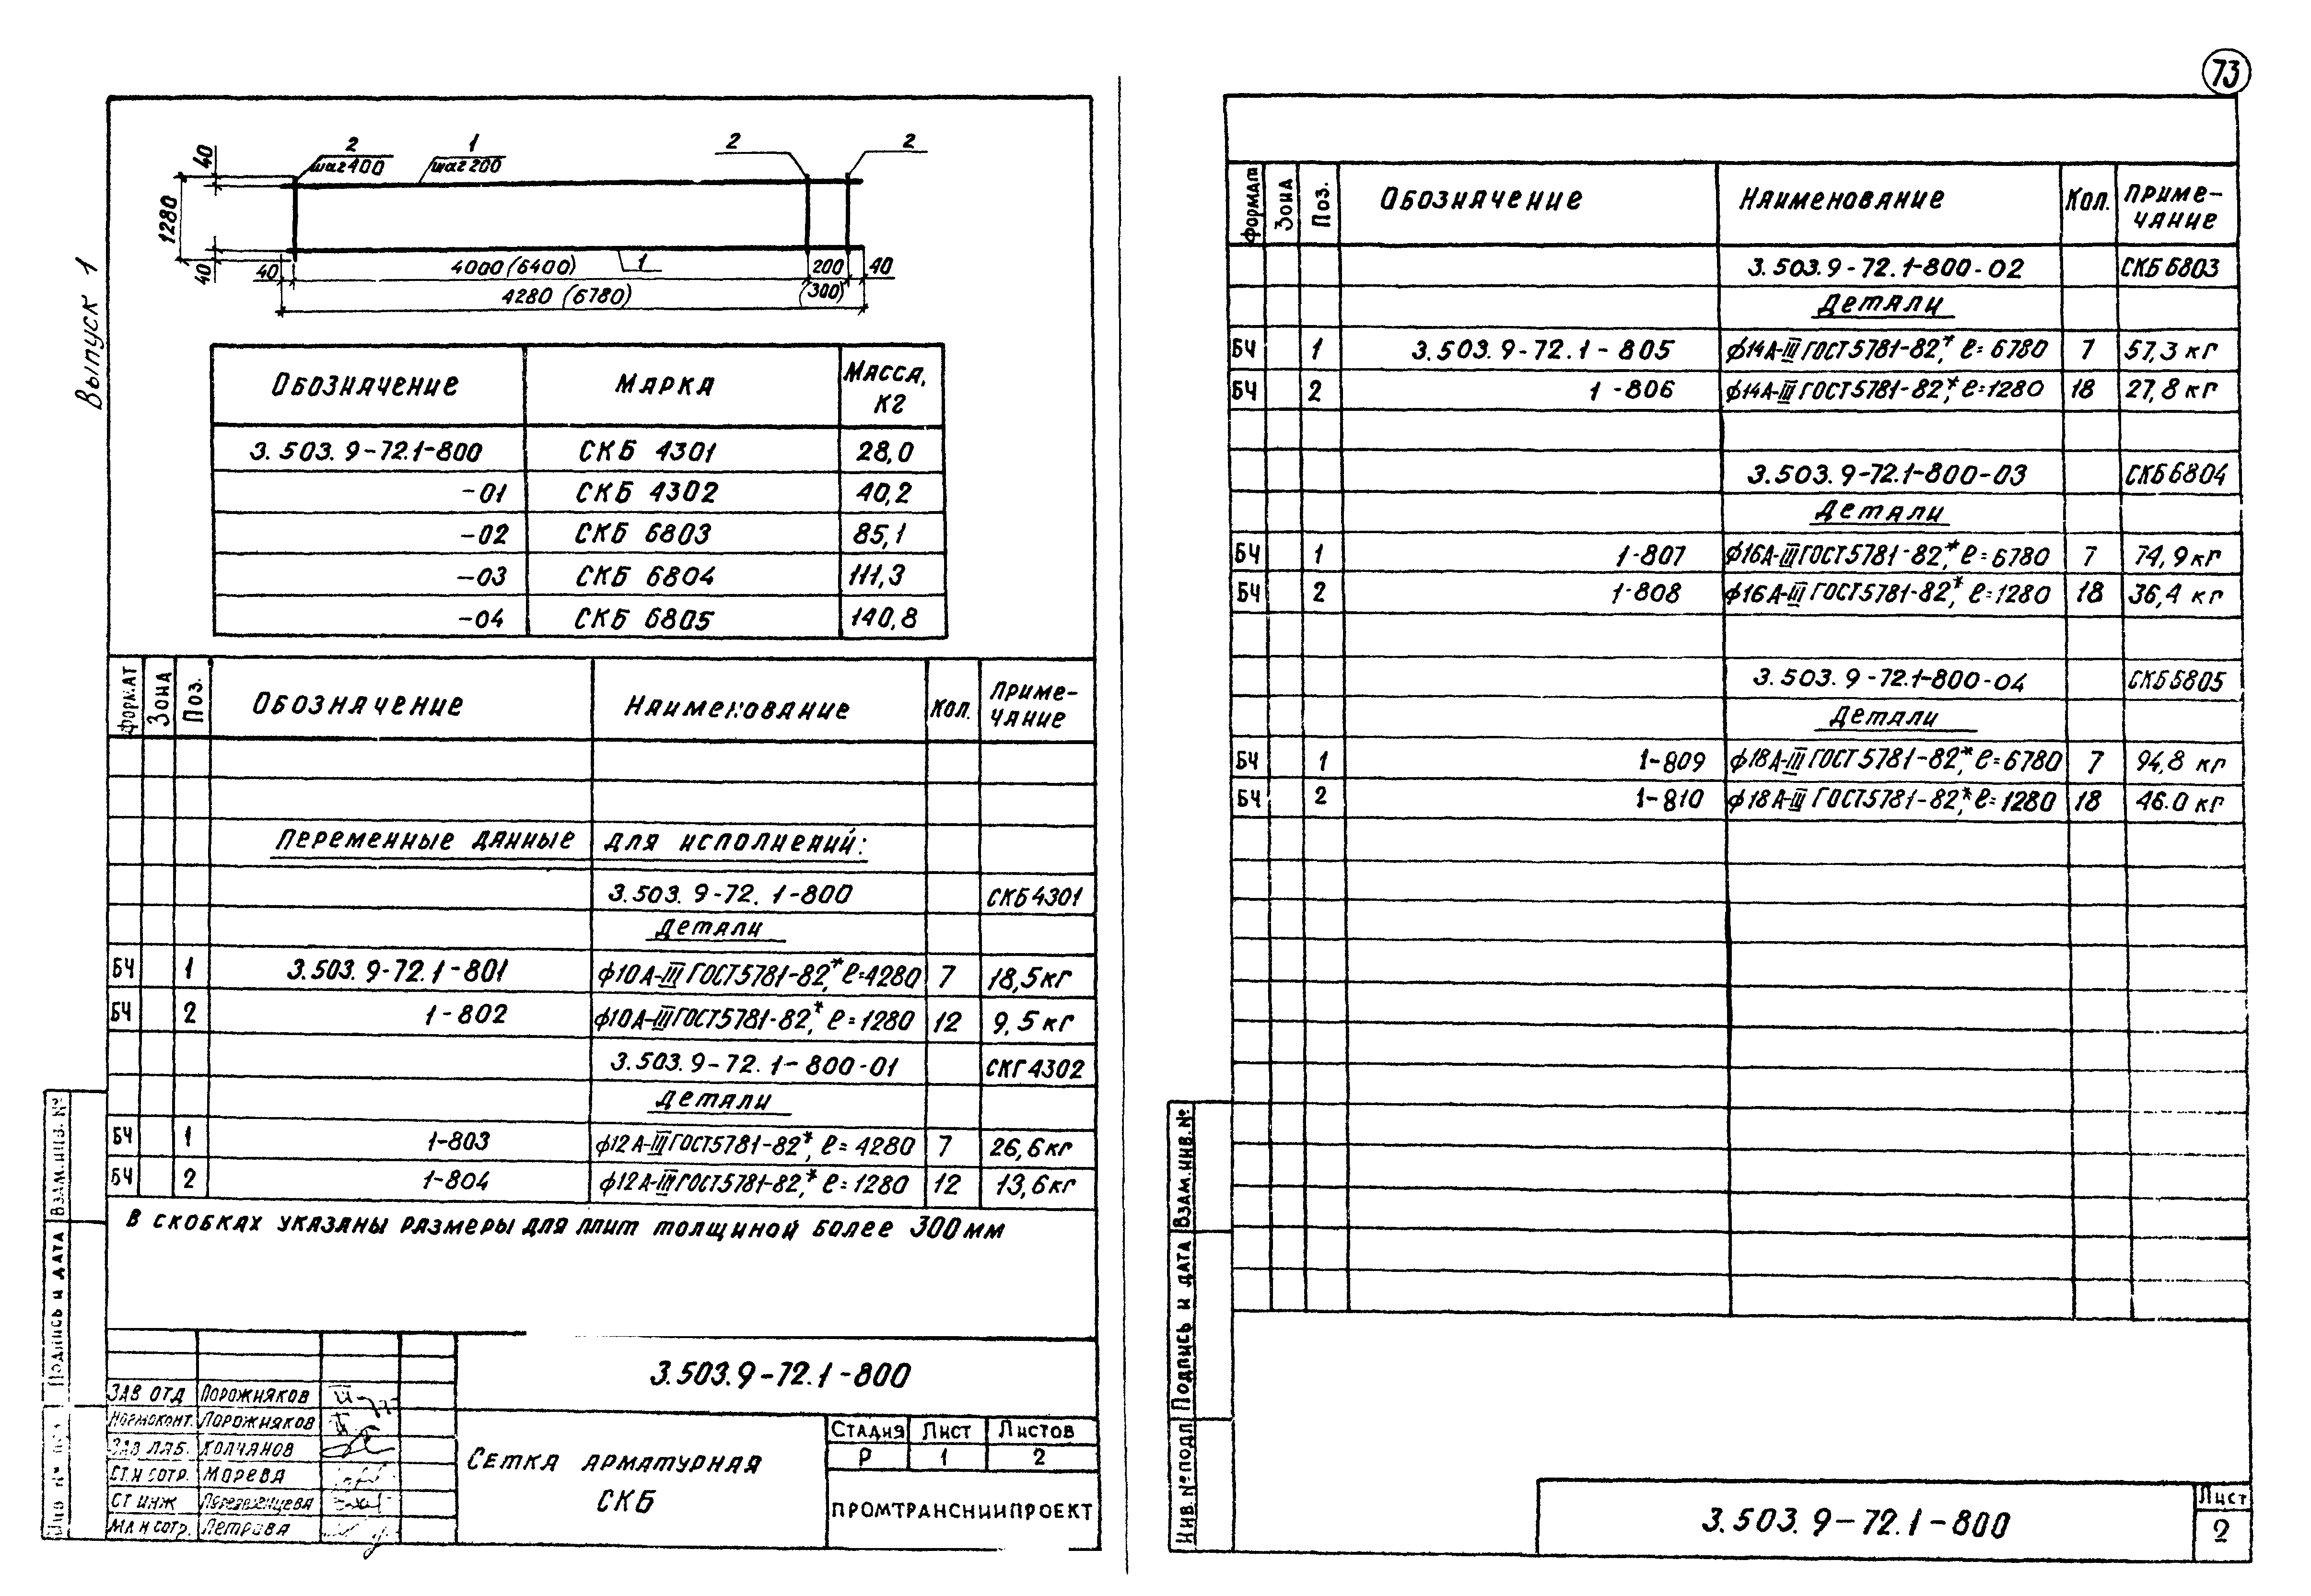 73
Выпуск 1
2
шаг 400
1
шаг 200
2
2
40
1280
40
40
4000 (6400)
1
200
(300)
40
4280 (6780)
Обозначение Марка Масса, кг
3.503.9-72.1-800 СКБ 4301 28,0
-01 СКБ 4302 40,2
-02 СКБ 6803 85,1
-03 СКБ 6804 111,3
-04 СКБ 6805 140,8
Формат Зона Поз. Обозначение Наименование Кол. Приме-
чание
Переменные данные для исполнений:
3.503.9-72.1-800 СКБ 4301
Детали
БЧ 1 3.503.9-72.1-801 ϕ10А-III ГОСТ5781-82*, ℓ=4280 7 18,5кг
БЧ 2 1-802 ϕ10А-III ГОСТ5781-82*, ℓ=1280 12 9,5кг
3.503.9-72.1-800-01 СКГ 4302
Детали
БЧ 1 1-803 ϕ12А-III ГОСТ5781-82*, ℓ=4280 7 26,6кг
БЧ 2 1-804 ϕ12А-III ГОСТ5781-82*, ℓ=1280 12 13,6кг
В скобках указаны размеры для плит толщиной более 300мм
Взам.инв.№
Подпись и дата
3.503.9-72.1-800
Зав отд Порожняков
Нормоконт. Порожняков
Зав лаб. Колчанов
Ст.н сотр. Морева
Ст инж
Мл н сотр. Петрова
Сетка арматурная
СКБ
Стадия Лист Листов
Р 1 2
ПРОМТРАНСНИИПРОЕКТ
Формат Зона Поз. Обозначение Наименование Кол. Приме-
чание
3.503.9-72.1-800-02 СКБ 6803
Детали
БЧ 1 3.503.9-72.1-805 ϕ14А-III ГОСТ5781-82*, ℓ=6780 7 57,3 кг
БЧ 2 1-806 ϕ14А-III ГОСТ5781-82*, ℓ=1280 18 27,8 кг
3.503.9-72.1-800-03 СКБ 6804
Детали
БЧ 1 1-807 ϕ16А-III ГОСТ5781-82*, ℓ=6780 7 74,9кг
БЧ 2 1-808 ϕ16А-III ГОСТ5781-82*, ℓ=1280 18 36,4 кг
3.503.9-72.1-800-04 СКБ 6805
Детали
БЧ 1 1-809 ϕ18А-III ГОСТ5781-82*, ℓ=6780 7 94,8 кг
БЧ 2 1-810 ϕ18А-III ГОСТ5781-82*, ℓ=1280 18 46.0 кг
Взам.инв.№
Подпись и дата
Инв.№подл
3.503.9-72.1-800
Лист
2